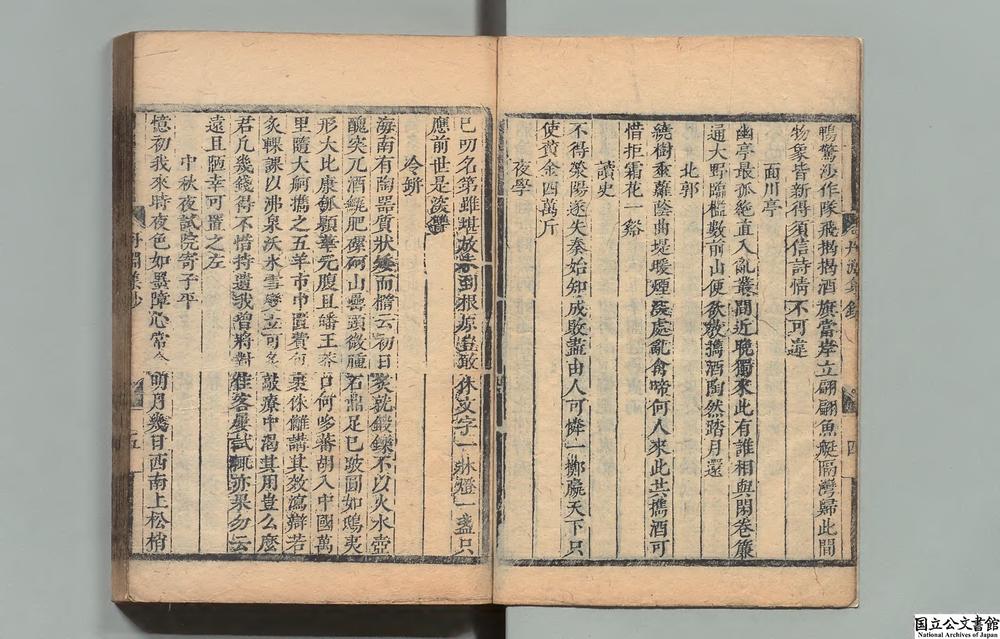 鴨驚沙作隊飛楊楊酒旗當岸立翩翩魚艇隔灣歸此間
物象皆新得須信詩情不可違
面川亭
幽亭最孤絶直入亂叢間近晚獨來此有誰相與閑卷簾
通大野臨檻數前山便欲敎擕酒陶然踏月還
北郭
繞樹垂蘿蔭曲堤暖煙深處亂禽啼何人來此共擕酒可
惜拒霜花一谿
讀史
不得滎陽遂失秦始知成敗盡由人可憐一擲贏天下只
使黄金四萬斤
夜學
已叨名第雖堪放未到根原豈敢休文字一牀燈一盞只
應前世是深讐
冷缾
海南有陶器質狀矮而橢云初日家就鍛鍊不以火水壺
醜突兀酒鋺肥磥砢山罍頭微腫石鼎足已跛圓如鴟夷
形大比康瓠顆華元腹且皤王莽口何哆蕃胡入中國萬
里隨大舸攜之五羊市中置費
裹侏離講其效瀉辯若
炙輠課以沸泉沃水雪變立可
鼓療中渴其用豈么麽
君凡幾錢得不惜持遺我曾將對佳客屢試輒亦果勿云
遠且陋幸可置之左
中秋夜試院寄子平
憶初我來時夜色如墨障心常
明月幾日西南上松梢
四
五
国立公文書館
National Archives of Japan